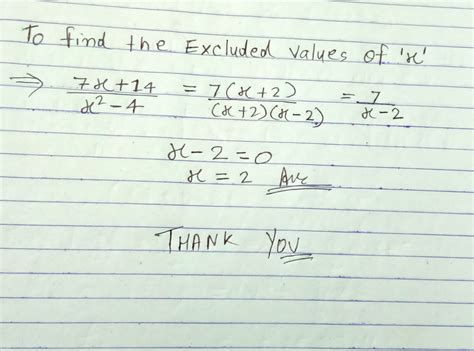 To find the Excluded values of 'x'
⇒ 7x+14 / x²-4 = 7(x+2) / (x+2)(x-2) = 7 / x-2
x-2=0
x = 2 Ans
THANK YOU